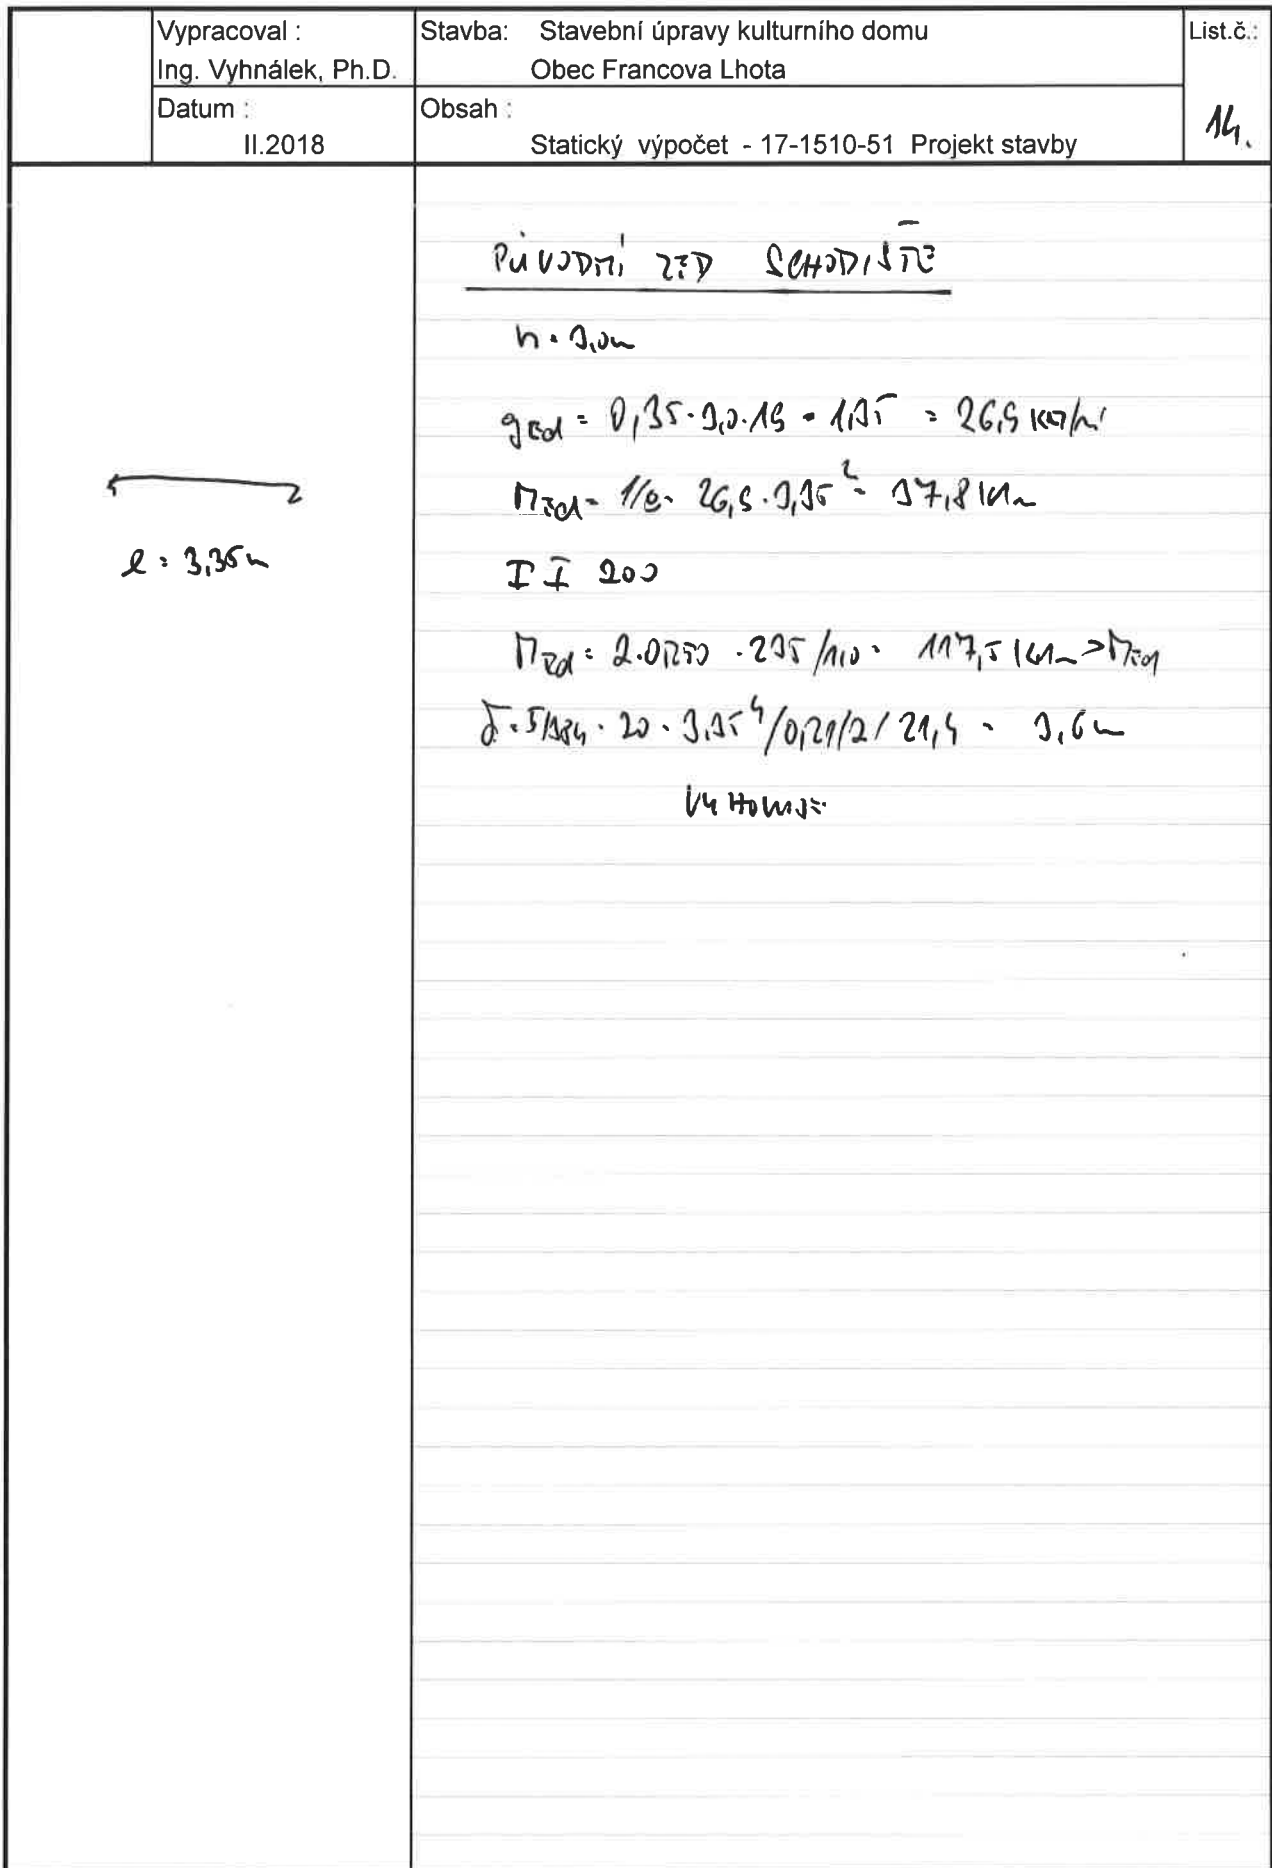 Vypracoval :
Ing. Vyhnálek, Ph.D.
Stavba: Stavební úpravy kulturního domu
Obec Francova Lhota
List.č.:
14.
Datum :
II.2018
Obsah :
Statický výpočet - 17-1510-51 Projekt stavby
PŮVODNÍ ZEĎ SCHODIŠTĚ
h = 3,0m
gEd = 0,35 · 3,0 · 19 · 1,35 = 26,9 kN/m'
MEd = 1/8 · 26,9 · 3,35² = 37,8 kNm
l = 3,35m
I I 200
MRd = 2 · 0,250 · 235 / 1,0 = 117,5 kNm > MEd
δ = 5/384 · 20 · 3,35⁴ / 0,21 / 2 / 21,4 = 3,6
VYHOVUJE